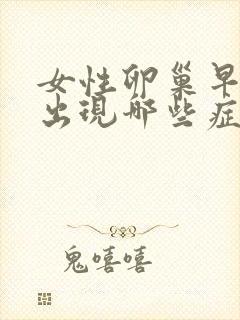 女性卵巢早
出現哪些症
鬼嘻嘻